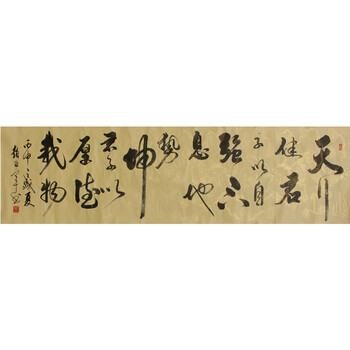 天行
健君
子以自
强不
息地
勢
坤
君子以
厚德
載物
丙申之歲夏